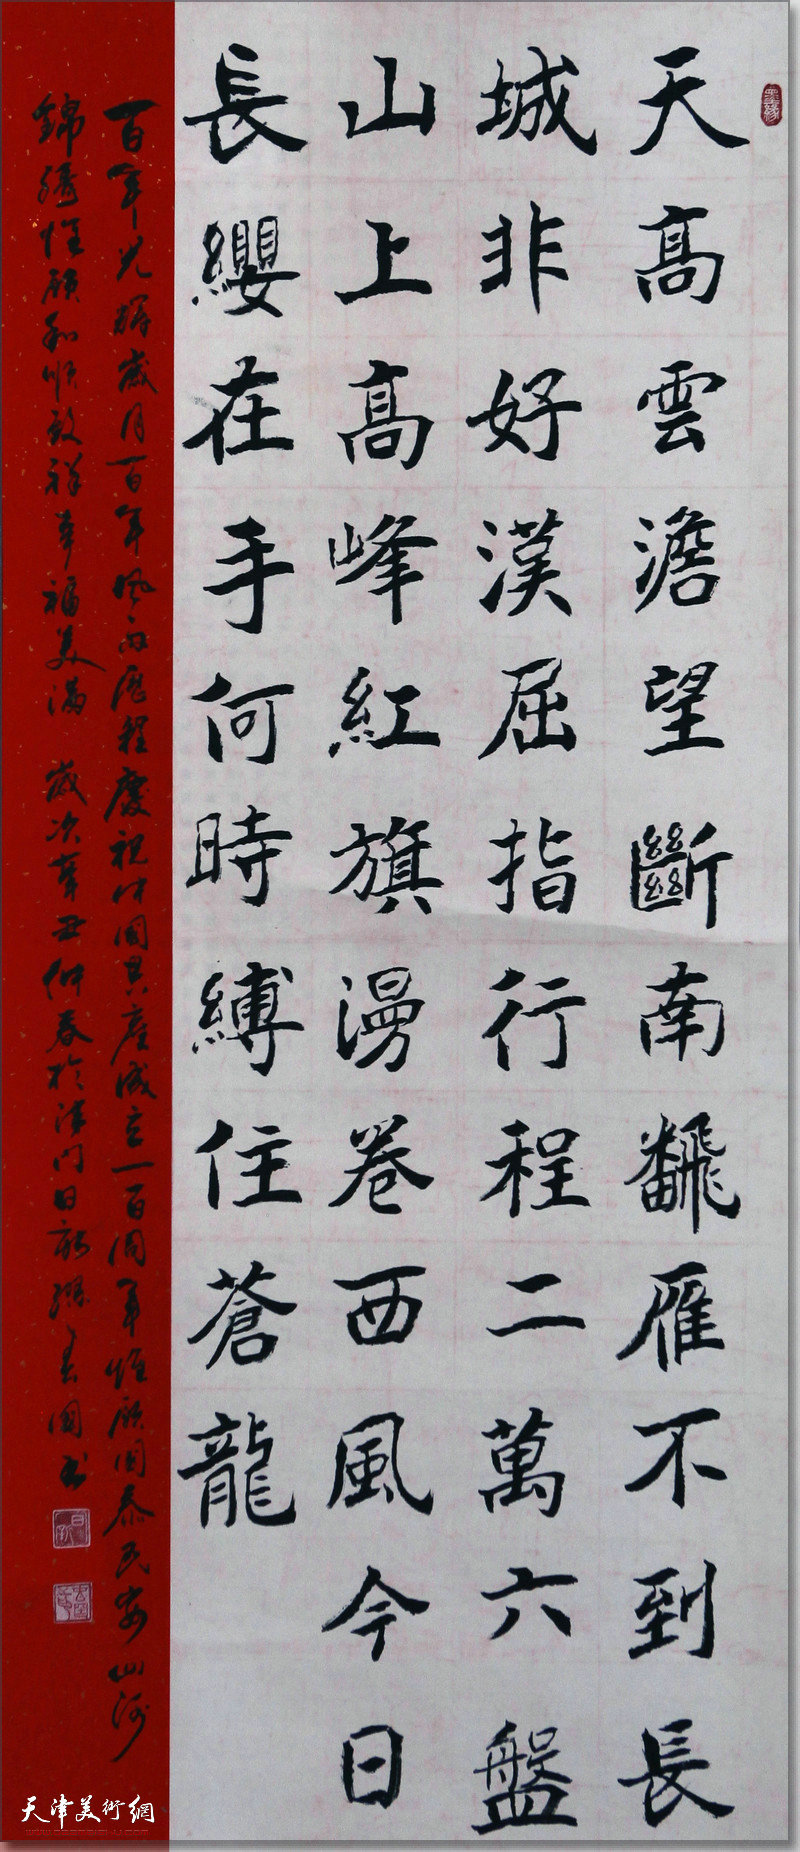 天高雲澹望斷南飜雁不到長
城非好漢屈指行程二萬六盤
山上高峰紅旗漫卷西風今日
長纓在手何時縛住蒼龍
百年光輝歲月百年風雨歷程慶祝中國共產成立一百周年惟願國泰民安山河
錦繡惟願和順致祥幸福美滿 歲次辛丑仲春於津門日新國书
天津美術網